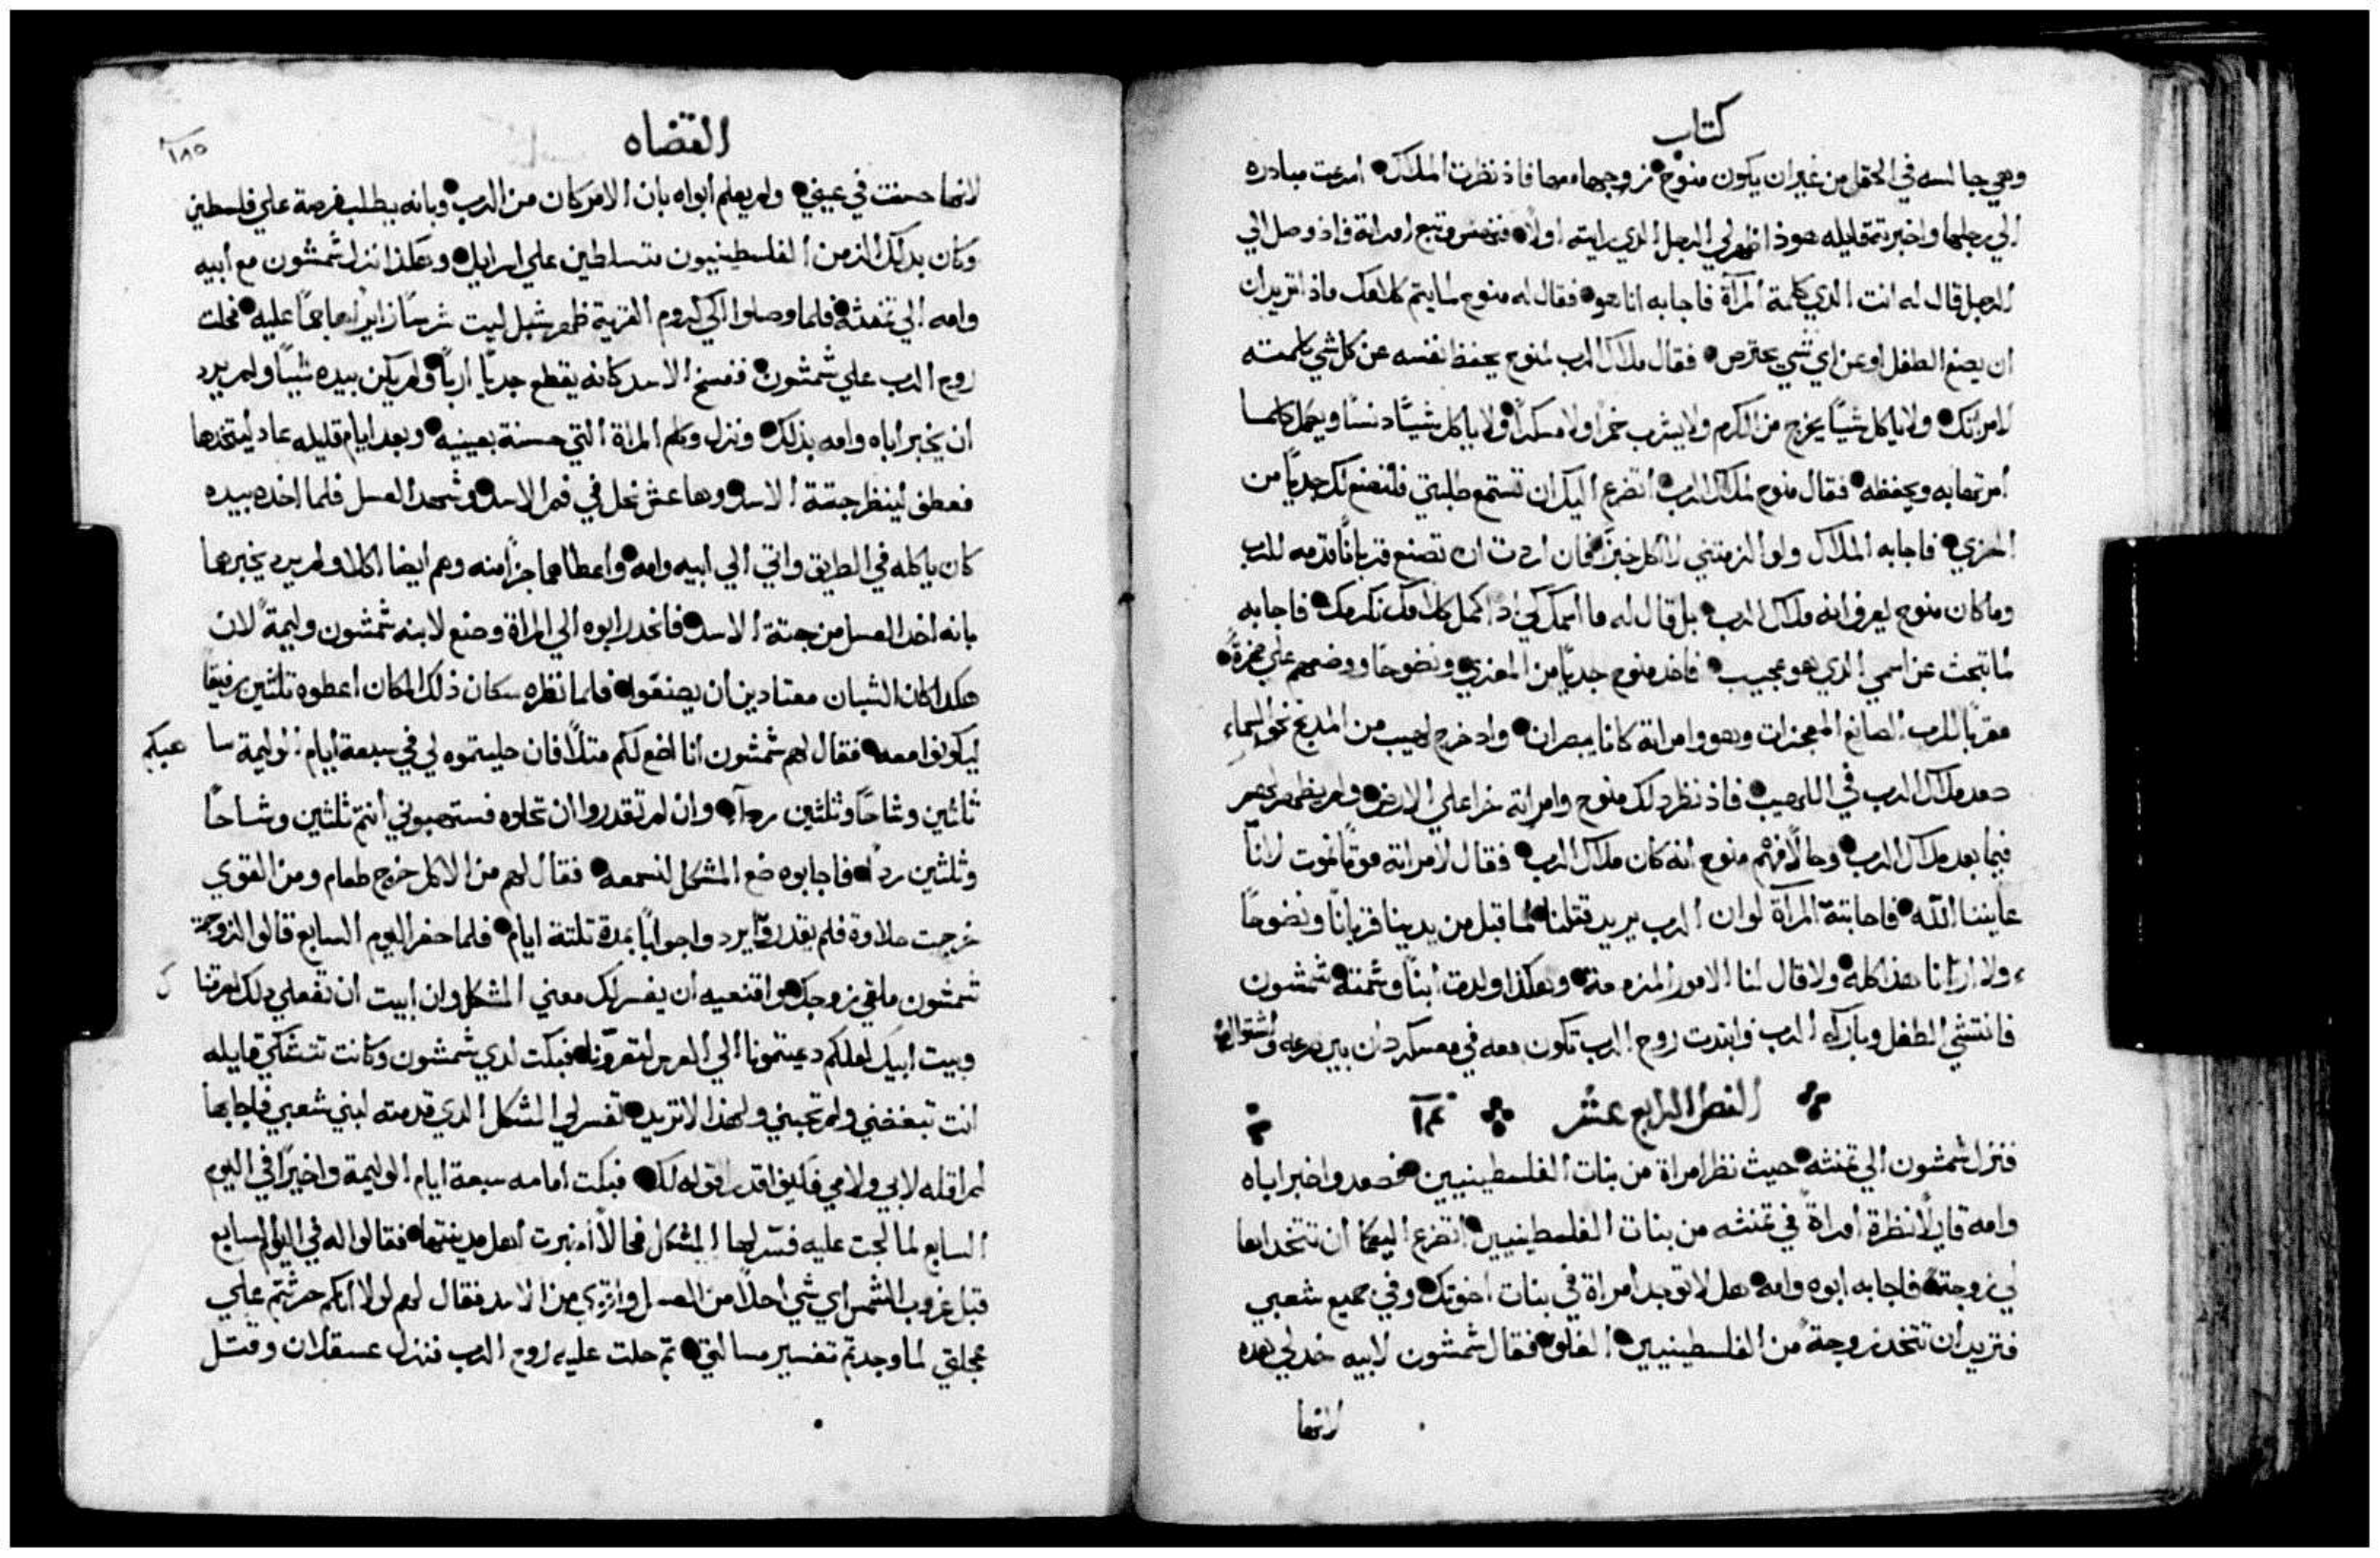 كتاب
وهي جالسه في الحقل من غير ان يكون منوح زوجها معها فاذ نظرت الملاك اسرعت مبادره
الي رجلها واخبرته قايله هوذا ظهر لي الرجل الذي رايته اولاً فنهض وتبع امراته واذ وصل الي
الرجل قال له انت الذي كلمة المرآة فاجابه انا هو فقال له منوح لما يتم كلامك ماذا تريد ان
ان يصنع الطفل او عن اي شي يحترص فقال ملاك الرب لمنوح يحفظ نفسه عن كل شي كلمته
لامراتك ولا ياكل شياً يخرج من الكرم ولا يشرب خمراً ولا مسكراً ولا ياكل شيًا دنسًا ويعمل كلما
امرتها به ويحفظه فقال منوح لملاك الرب اتضرع اليك ان تستمع طلبتي فلنصنع لك جدياً من
المعزي فاجابه الملاك ولو الزمتني لا اكل خبزك فان اردت ان تصنع قرباناً قدمه للرب
وما كان منوح يعرف انه ملاك الرب بل قال له ما اسمك لكي اذا كمل كلامك نكرمك فاجابه
لما تبحث عن اسمي الذي هو عجيب فاخذ منوح جدياً من المعزي ونضوحًا ووضعهم علي صخرةً
مقربًا للرب الصانع المعجزات وهو وامراته كانا يبصران واذ خرج لهيب من المذبح نحو السماء
صعد ملاك الرب في اللهيب فاذ نظر ذلك منوح وامراته خرا علي الارض ولم يظهر لهم
فيما بعد ملاك الرب وحالاً فهم منوح انه كان ملاك الرب فقال لامراته موتًا نموت لاننا
عايننا الله فاجابته المرآة لو ان الرب يريد قتلنا لما قبل من يدينا قرباناً ونضوحًا
ولا ارانا هذا كله ولا قال لنا الامور المزمعة وهكذا ولدت ابنًا وسمته شمشون
فانتشي الطفل وباركه الرب وابتدت روح الرب تكون معه في معسكر دان بين صرعه واشتوال
الفصل الرابع عشر
فنزل شمشون الي تمنثه حيث نظر امراة من بنات الفلسطينيين فصعد واخبر اباه
وامه قايلًا نظرة امراةً في تمنثه من بنات الفلسطينيين اتضرع اليكما ان تتخداها
لي زوجةً فاجابه ابوه وامه هل لا توجد امراة في بنات اخوتك وفي جميع شعبي
فتريد ان تتخد زوجةً من الفلسطينيين الغلف فقال شمشون لابيه خد لي هده
لانها
القضاه
١٨٥
لانها حسنت في عيني ولم يعلم ابواه بان الامر كان من الرب وبانه يطلب فرصة علي فلسطين
وكان بدلك الزمن الفلسطينيون متسلطين علي اسرايل وهكذا نزل شمشون مع ابيه
وامه الي تمنثه فلما وصلوا الي كروم القرية ظهر شبل ليث شرسًا زايراً هاجمًا عليه فحلت
روح الرب علي شمشون ففسخ الاسد كانه يقطع جديًا اربًا ولم يكن بيده شيًا ولم يرد
ان يخبر اباه وامه بذلك ونزل وكلم المراة التي حسنة بعينيه وبعد ايام قليله عاد ليتخدها
فعطف لينظر جتة الاسد وها عش نحل في فم الاسد وشهد العسل فلما اخده بيده
كان ياكله في الطريق واتي الي ابيه وامه واعطاهما جزاً منه وهم ايضا اكلا ولم يرد يخبرهما
بانه اخد العسل من جتة الاسد فانحدر ابوه الي المراة وصنع لابنه شمشون وليمةً لان
هكدا كان الشبان معتادين ان يصنعوا فلما نظره سكان ذلك المكان اعطوه تلثين رفيقًا
ليكونوا معه فقال لهم شمشون انا اضع لكم مثلًا فان حليتموه لي في سبعة ايام الوليمة سا عيكم
ثلثين وشاحًا وثلثين رداً وان لم تقدروا ان تحلوه فستهبوني انتم ثلثين وشاحًا
وثلثين رداً فاجابوه ضع المشكل لنسمعه فقال لهم من الاكل خرج طعام ومن القوي
خرجت حلاوة فلم يقدروا يردوا جواباً بمدة تلتة ايام فلما حضر اليوم السابع قالوا لزوجة
شمشون ملقي زوجك واقنعيه ان يفسر لك معني المشكل وان ابيت ان تفعلي دلك احرقنا ك
وبيت ابيك لعلكم دعيتمونا الي العرس لتعرّونا فبكت لدي شمشون وكانت تتشكي قايله
انت تبغضني ولم تحبني ولهذا لا تريد تفسر لي المشكل الدي قدمته لبني شعبي فاجابها
لم اقله لابي ولامي فكيف اقدر اقوله لك فبكت امامه سبعة ايام الوليمة واخيراً في اليوم
السابع لما لجت عليه فسّر لها المشكل فحالاً اخبرت اهل مدينتها فقالوا له في اليوم السابع
قبل غروب الشمس اي شي احلا من العسل واقوي من الاسد فقال لهم لولا انكم حرثتم علي
عجلتي لما وجدتم تفسير مسالتي تم حلت عليه روح الرب فنزل عسقلان وقتل